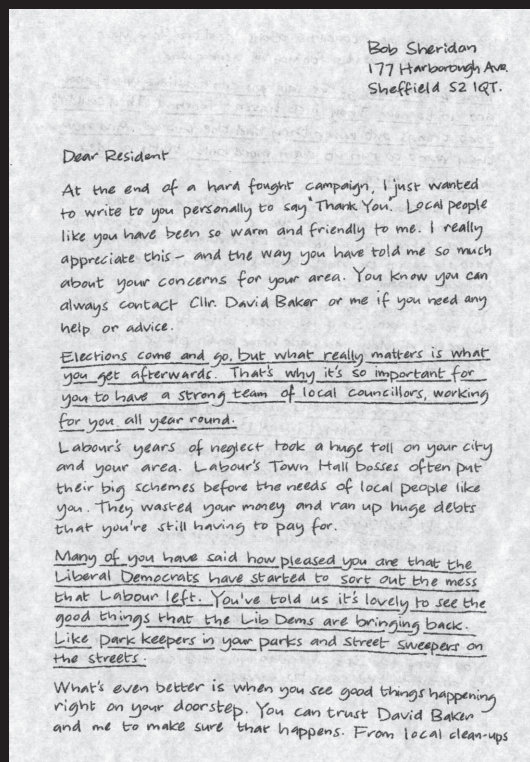 Bob Sheridan
177 Harborough Ave.
Sheffield S2 1QT.
Dear Resident
At the end of a hard fought campaign, I just wanted
to write to you personally to say "Thank You". Local people
like you have been so warm and friendly to me. I really
appreciate this - and the way you have told me so much
about your concerns for your area. You know you can
always contact Cllr. David Baker or me if you need any
help or advice.
Elections come and go, but what really matters is what
you get afterwards. That's why it's so important for
you to have a strong team of local councillors, working
for you all year round.
Labour's years of neglect took a huge toll on your city
and your area. Labour's Town Hall bosses often put
their big schemes before the needs of local people like
you. They wasted your money and ran up huge debts
that you're still having to pay for.
Many of you have said how pleased you are that the
Liberal Democrats have started to sort out the mess
that Labour left. You've told us it's lovely to see the
good things that the Lib Dems are bringing back.
Like park keepers in your parks and street sweepers on
the streets.
What's even better is when you see good things happening
right on your doorstep. You can trust David Baker
and me to make sure that happens. From local clean-ups